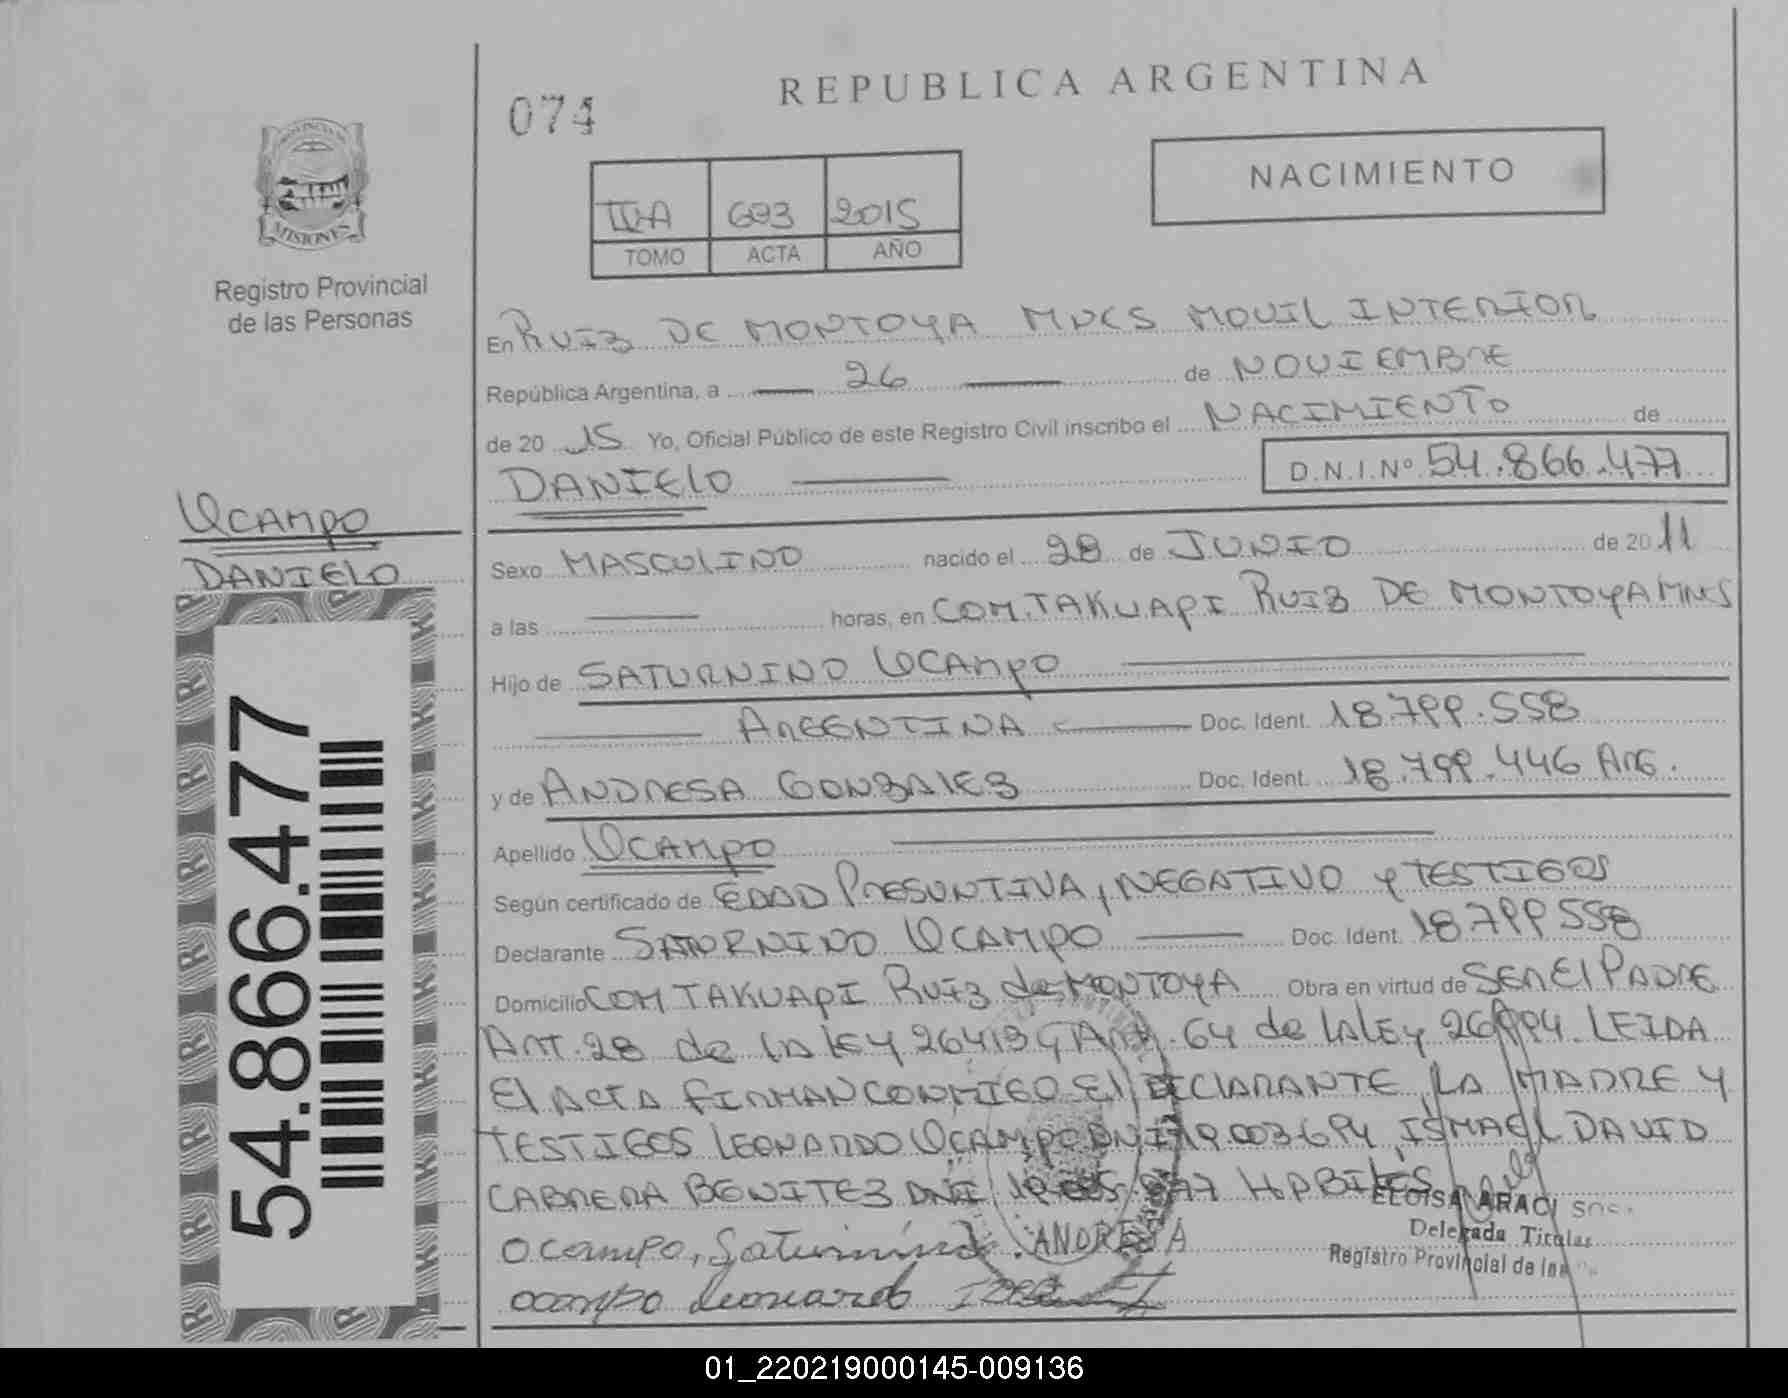 REPUBLICA ARGENTINA
074
NACIMIENTO
PROVINCIA DE
MISIONES
Registro Provincial
de las Personas
II-A 693 2015
TOMO ACTA AÑO
En RUIZ DE MONTOYA MNES MOVIL INTERIOR
República Argentina, a 26 de NOVIEMBRE
de 20 15 Yo, Oficial Público de este Registro Civil inscribo el NACIMIENTO de
DANIELO D.N.I.Nº 54.866.477
OCAMPO
DANIELO
54.866.477
Sexo MASCULINO nacido el 28 de JUNIO de 20 11
a las horas, en COM.TAKUAPI RUIZ DE MONTOYA MNES
Hijo de SATURNINO OCAMPO
ARGENTINA Doc. Ident. 18.799.558
y de ANDRESA GONZALEZ Doc. Ident. 18.799.446 ARG.
Apellido OCAMPO
Según certificado de EDAD PRESUNTIVA, NEGATIVO y TESTIGOS
Declarante SATURNINO OCAMPO Doc. Ident. 18799558
Domicilio COM TAKUAPI RUIZ de MONTOYA Obra en virtud de SER El PADRE
ART. 28 de la lEY 26413 y ART. 64 de la lEy 26994. LEIDA
El ACTA FIRMAN CONMIGO El DECLARANTE, LA MADRE Y
TESTIGOS LEONARDO OCAMPO DNI 19.003.694, ISMAEL DAVID
CABRERA BENITEZ DNI HABILES
Ocampo, Saturnino. ANDRESA
ocampo leonardo
ELOISA ARACI
Delegada Titular
Registro Provincial de las
01_220219000145-009136